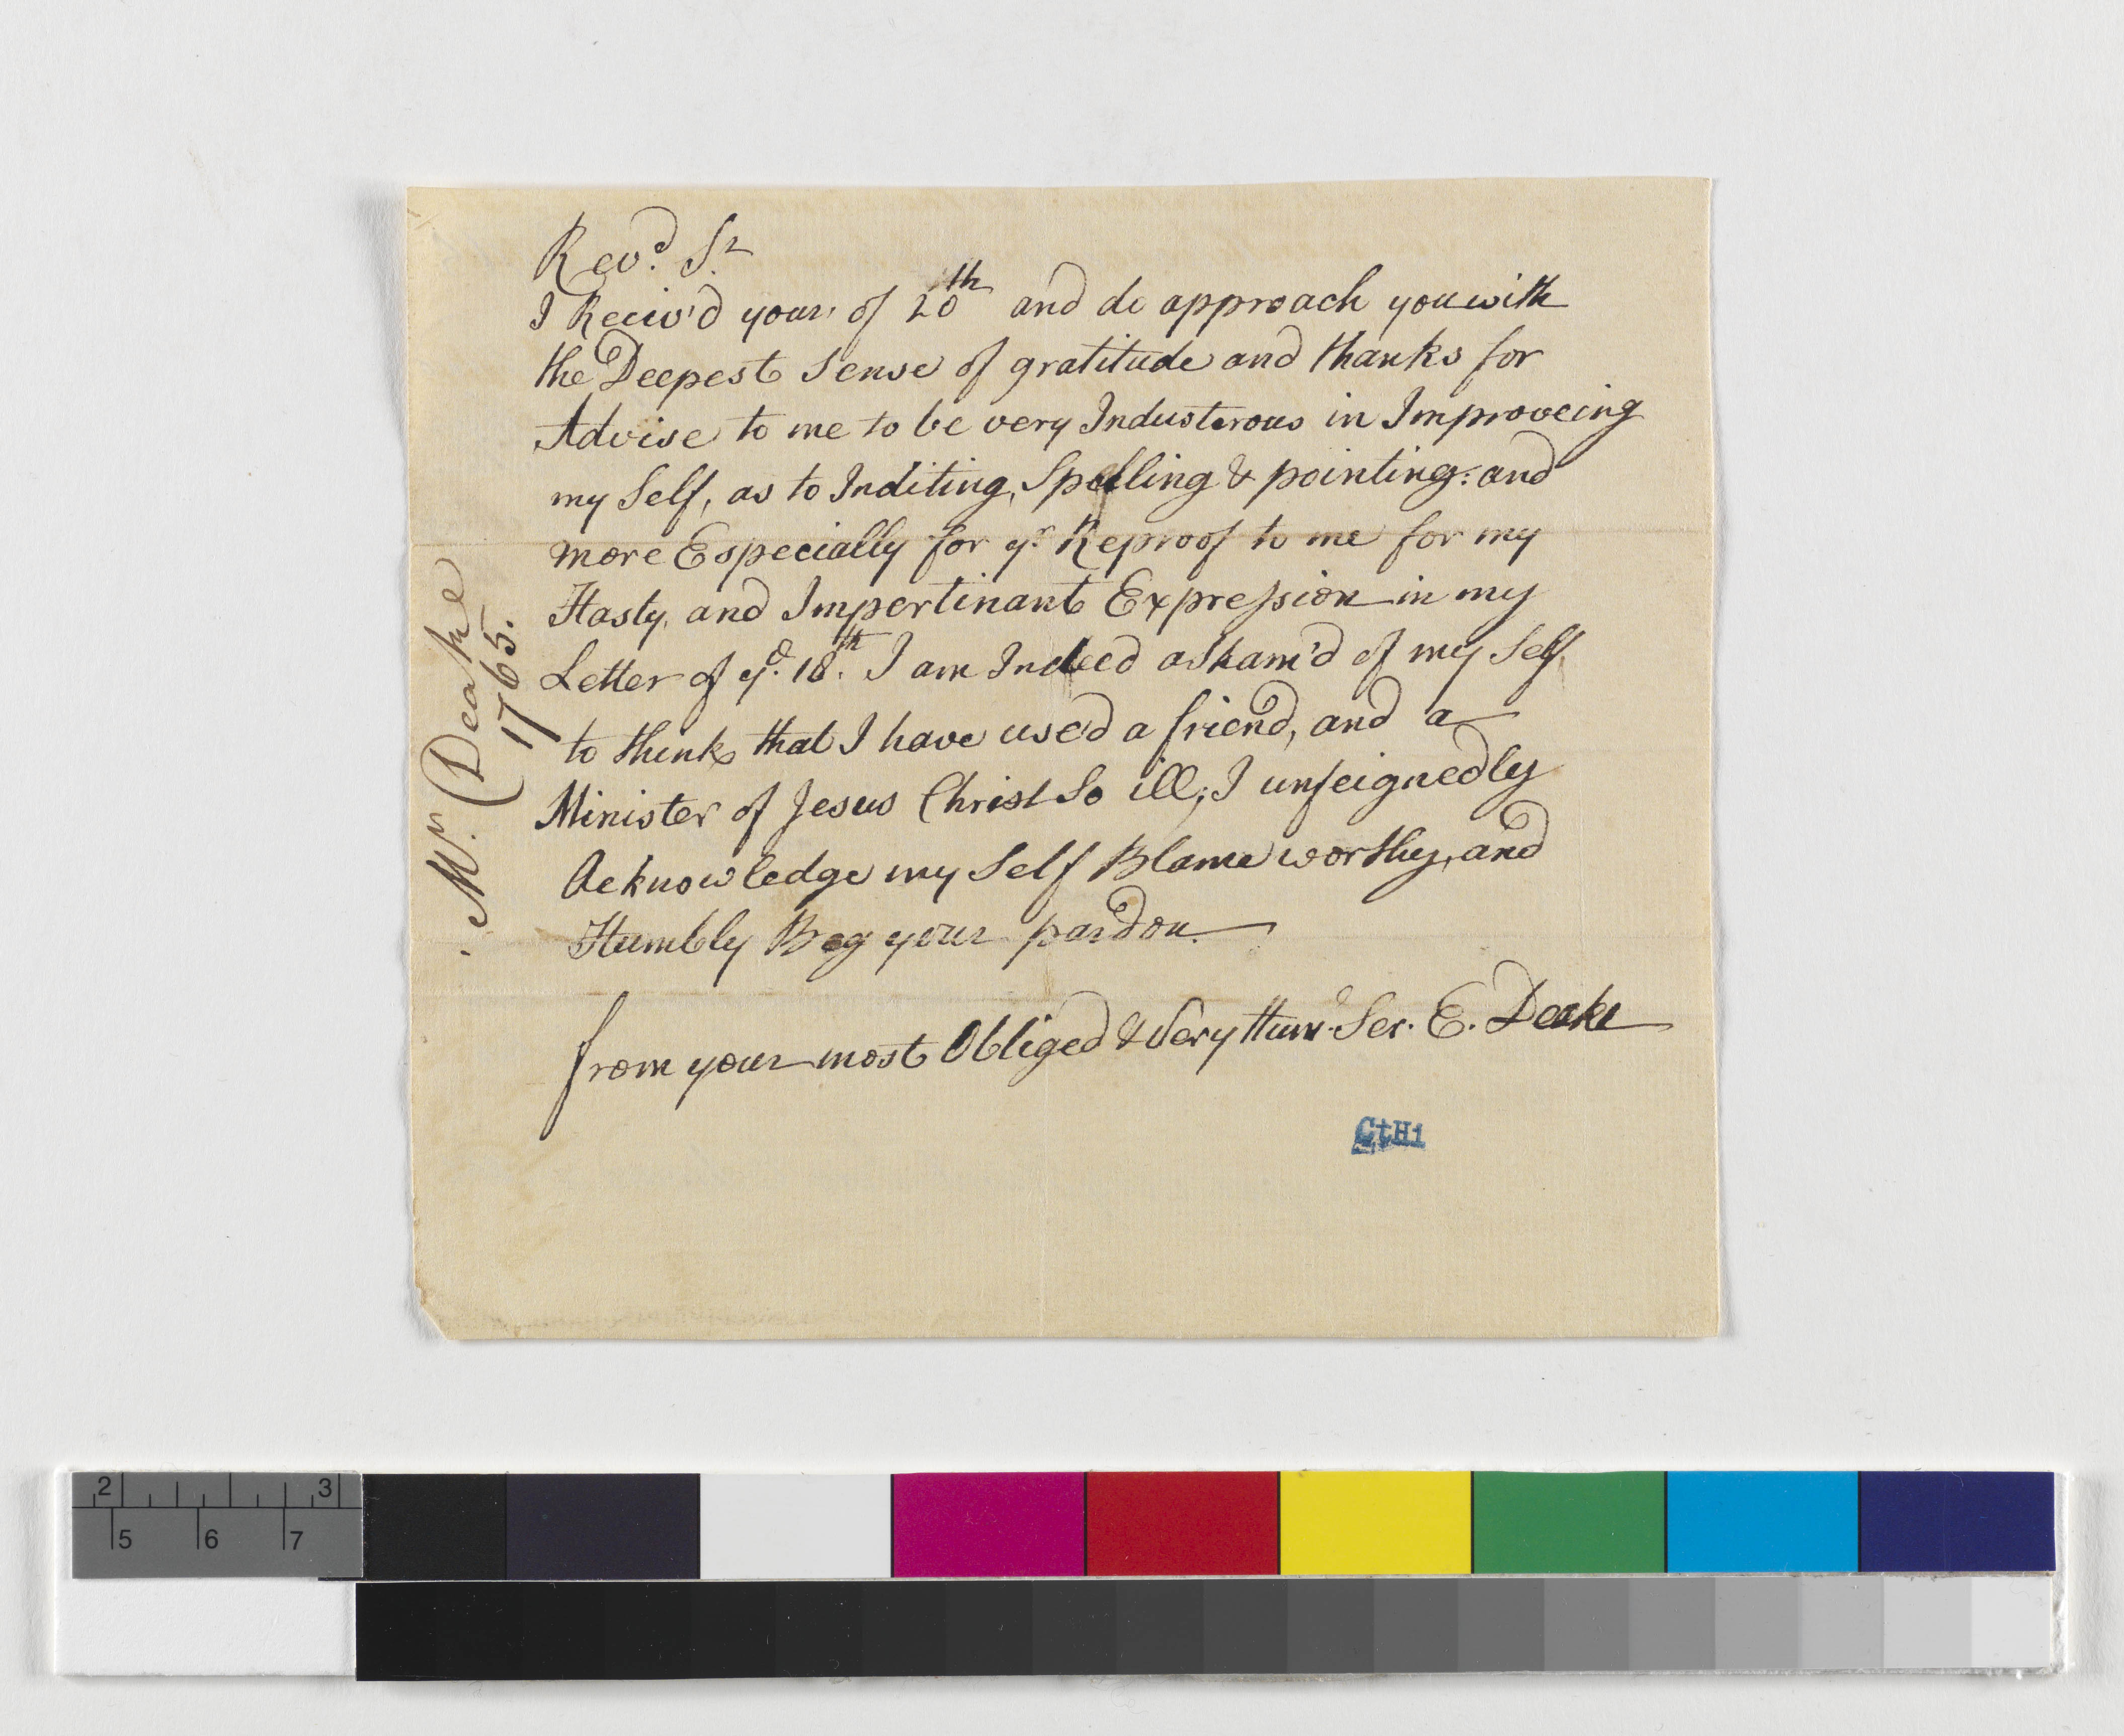 Revd. Sr
I Reciv'd your, of 20th and do approach you with
the Deepest Sense of gratitude and thanks for
Advise to me to be very Industerous in Improveing
my Self, as to Inditing, Spelling & pointing: and
more Especially for yr. Reproof to me for my
Hasty, and Impertinant Expression in my
Letter of ye. 18th. I am Indeed asham'd of my Self
to think that I have used a friend, and a
Minister of Jesus Christ So ill; I unfeignedly
Acknowledge my Self Blame worthy, and
Humbly Beg your pardon.
from your most Obliged & Very Hume. Ser. E. Deake
Mr. Deake
1765.
CtHi
2 3
5 6 7